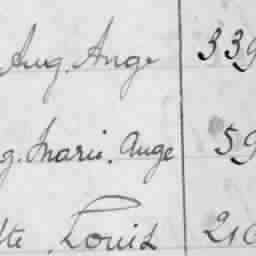 Aug. Ange 339
g. Marie. Ange 59
te, Louis 210